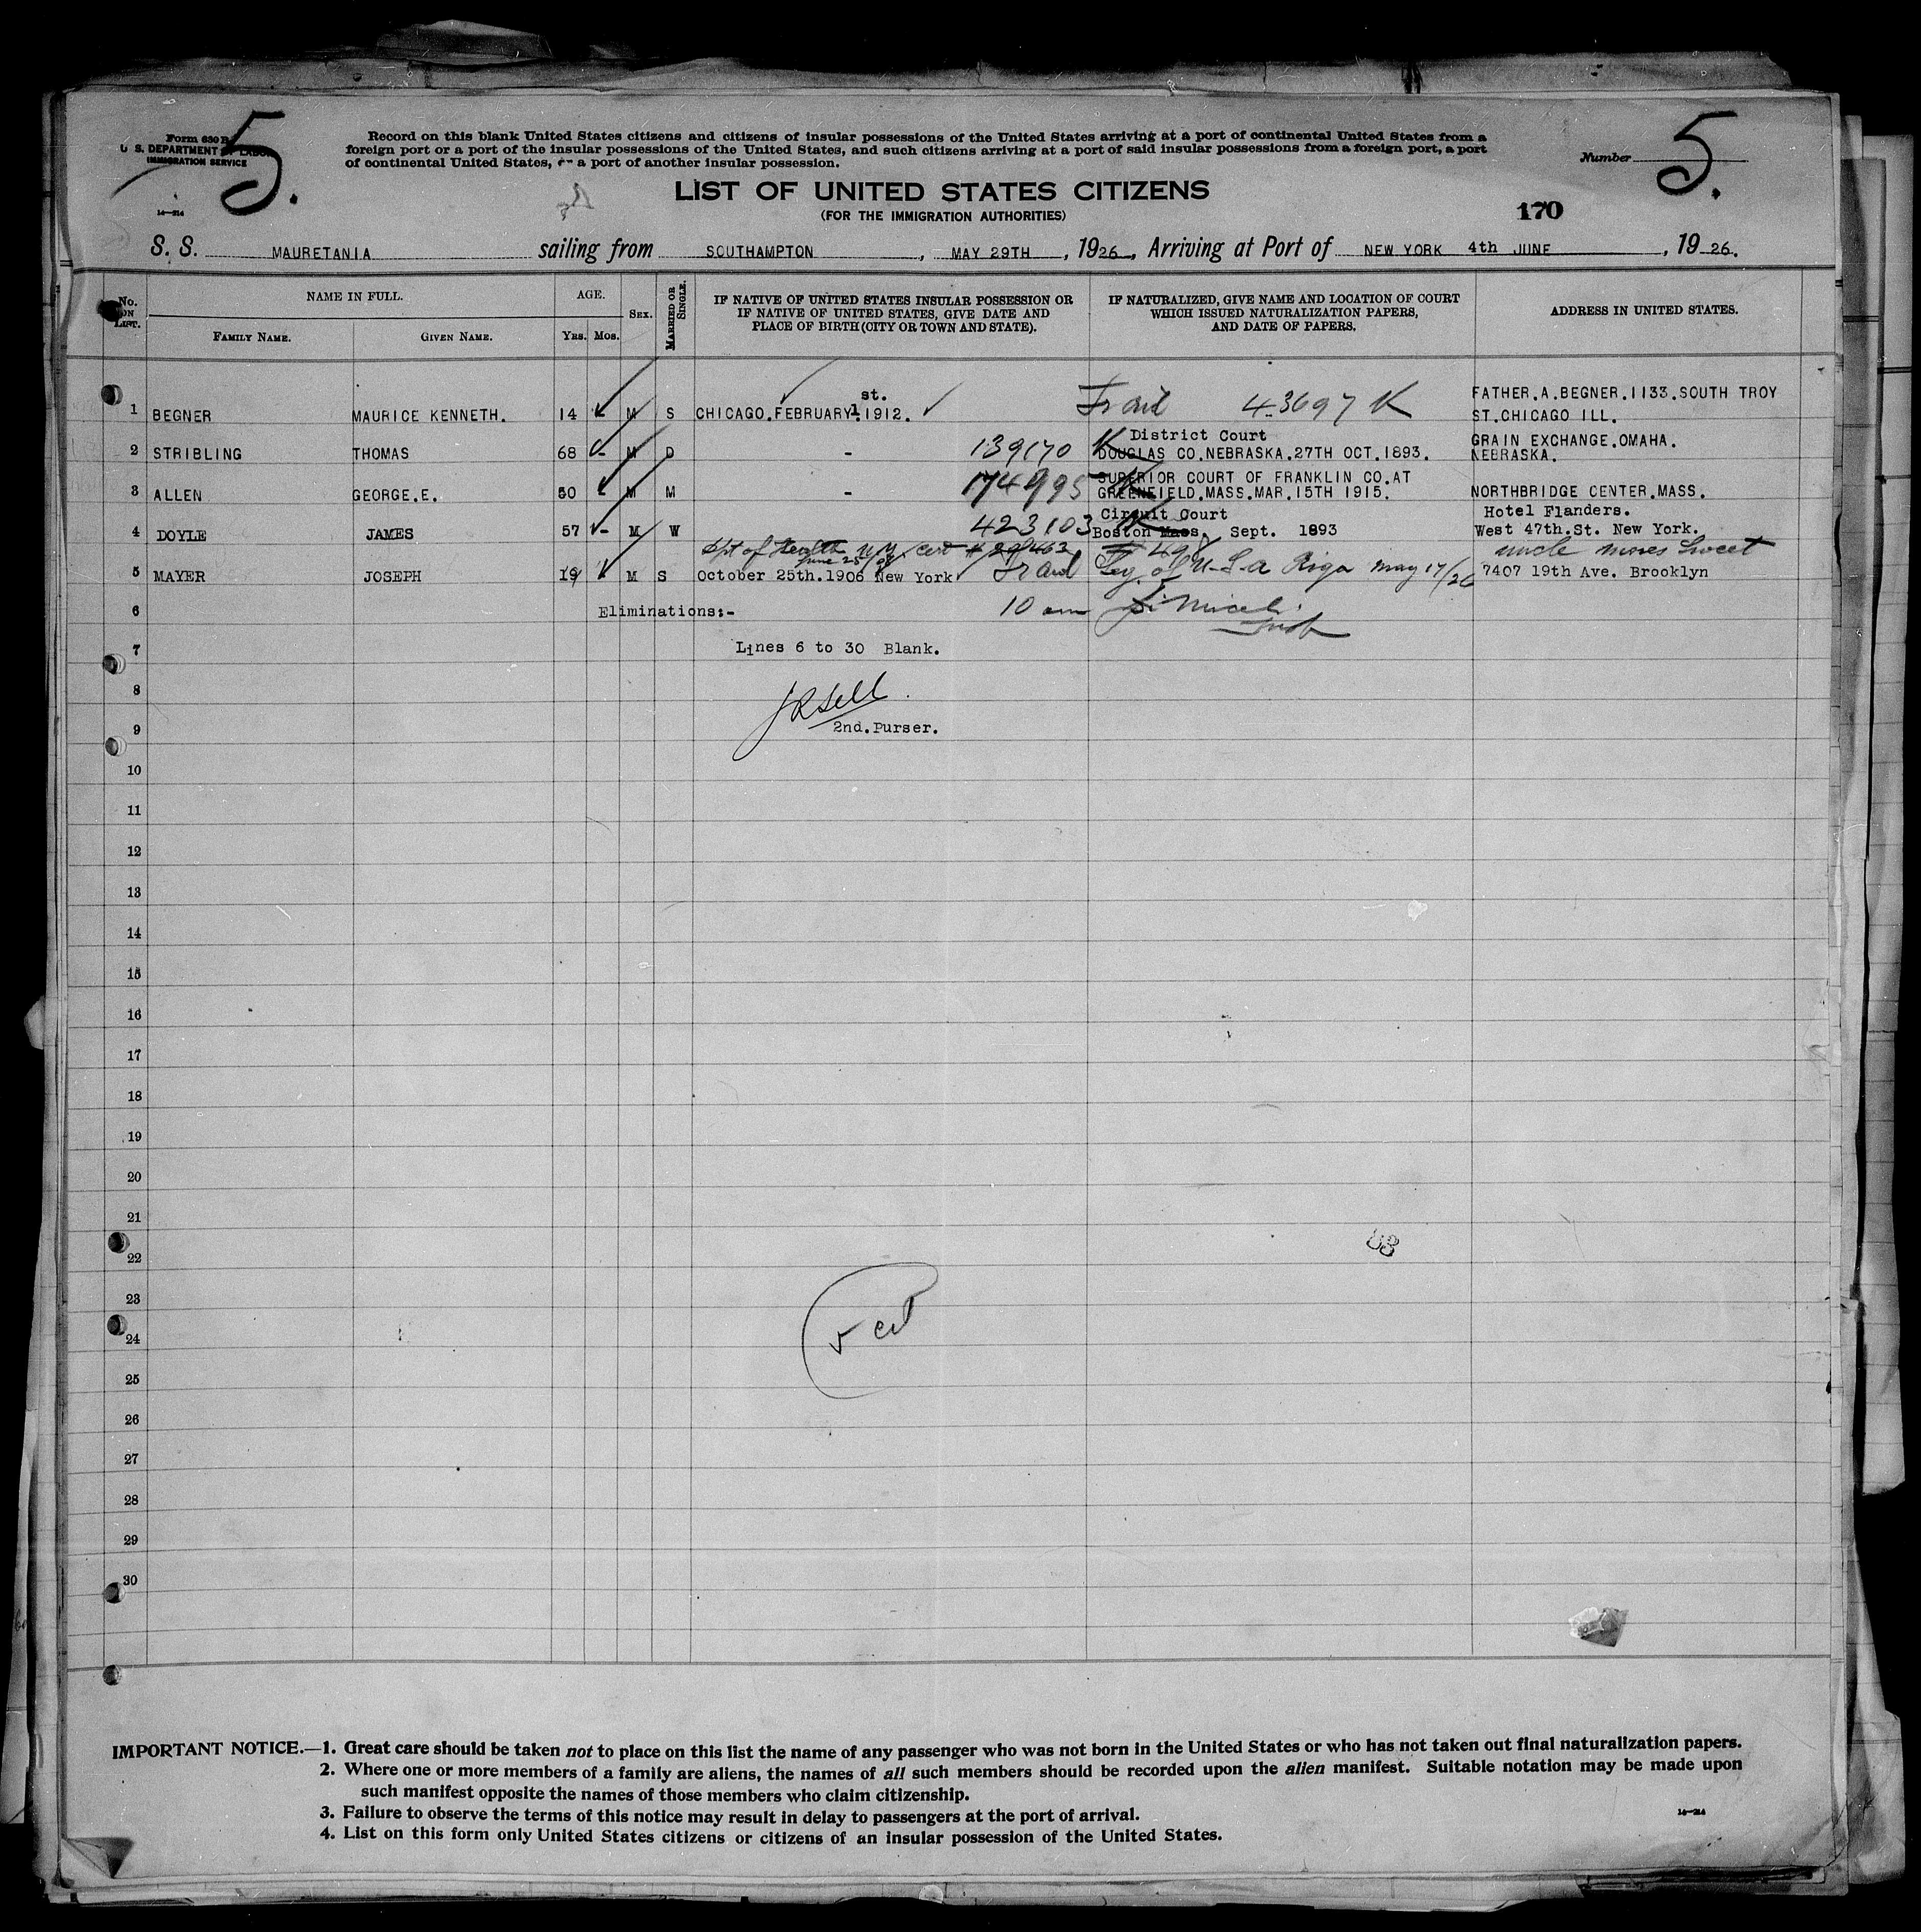 5.
5.
Form 630 B
U. S. DEPARTMENT OF LABOR
IMMIGRATION SERVICE
14—214
Record on this blank United States citizens and citizens of insular possessions of the United States arriving at a port of continental United States from a
foreign port or a port of the insular possessions of the United States, and such citizens arriving at a port of said insular possessions from a foreign port, a port
of continental United States, or a port of another insular possession.
Number
LIST OF UNITED STATES CITIZENS
(FOR THE IMMIGRATION AUTHORITIES)
170
S. S. MAURETANIA sailing from SOUTHAMPTON, MAY 29TH, 1926, Arriving at Port of NEW YORK 4th JUNE, 1926.
No. ON LIST.
NAME IN FULL.
FAMILY NAME.
GIVEN NAME.
AGE.
YRS. MOS.
SEX.
MARRIED OR SINGLE.
IF NATIVE OF UNITED STATES INSULAR POSSESSION OR
IF NATIVE OF UNITED STATES, GIVE DATE AND
PLACE OF BIRTH (CITY OR TOWN AND STATE).
IF NATURALIZED, GIVE NAME AND LOCATION OF COURT
WHICH ISSUED NATURALIZATION PAPERS,
AND DATE OF PAPERS.
ADDRESS IN UNITED STATES.
st. FATHER.A.BEGNER.1133.SOUTH TROY
1 BEGNER MAURICE KENNETH. 14 - M S CHICAGO.FEBRUARY 1 1912. 43697 K ST.CHICAGO ILL.
District Court GRAIN EXCHANGE.OMAHA.
2 STRIBLING THOMAS 68 - M D - 139170 K DOUGLAS CO.NEBRASKA.27TH OCT.1893. NEBRASKA.
SUPERIOR COURT OF FRANKLIN CO.AT
3 ALLEN GEORGE.E. 50 - M M - 174995 K GREENFIELD.MASS.MAR.15TH 1915. NORTHBRIDGE CENTER.MASS.
Circuit Court Hotel Flanders.
4 DOYLE JAMES 57 - M W 423103 K Boston Mass. Sept. 1893 West 47th.St. New York.
Dpt of Health N.Y. Cert # uncle Moses Sweet
5 MAYER JOSEPH 19 M S October 25th.1906 New York Leg. of U.S.a Riga May 17/26 7407 19th Ave. Brooklyn
6 Eliminations:- 10 am
7 Lines 6 to 30 Blank.
8
9 2nd.Purser.
10
11
12
13
14
15
16
17
18
19
20
21
22
23
24
25
26
27
28
29
30
IMPORTANT NOTICE.—1. Great care should be taken not to place on this list the name of any passenger who was not born in the United States or who has not taken out final naturalization papers.
2. Where one or more members of a family are aliens, the names of all such members should be recorded upon the alien manifest. Suitable notation may be made upon
such manifest opposite the names of those members who claim citizenship.
3. Failure to observe the terms of this notice may result in delay to passengers at the port of arrival.
14—214
4. List on this form only United States citizens or citizens of an insular possession of the United States.